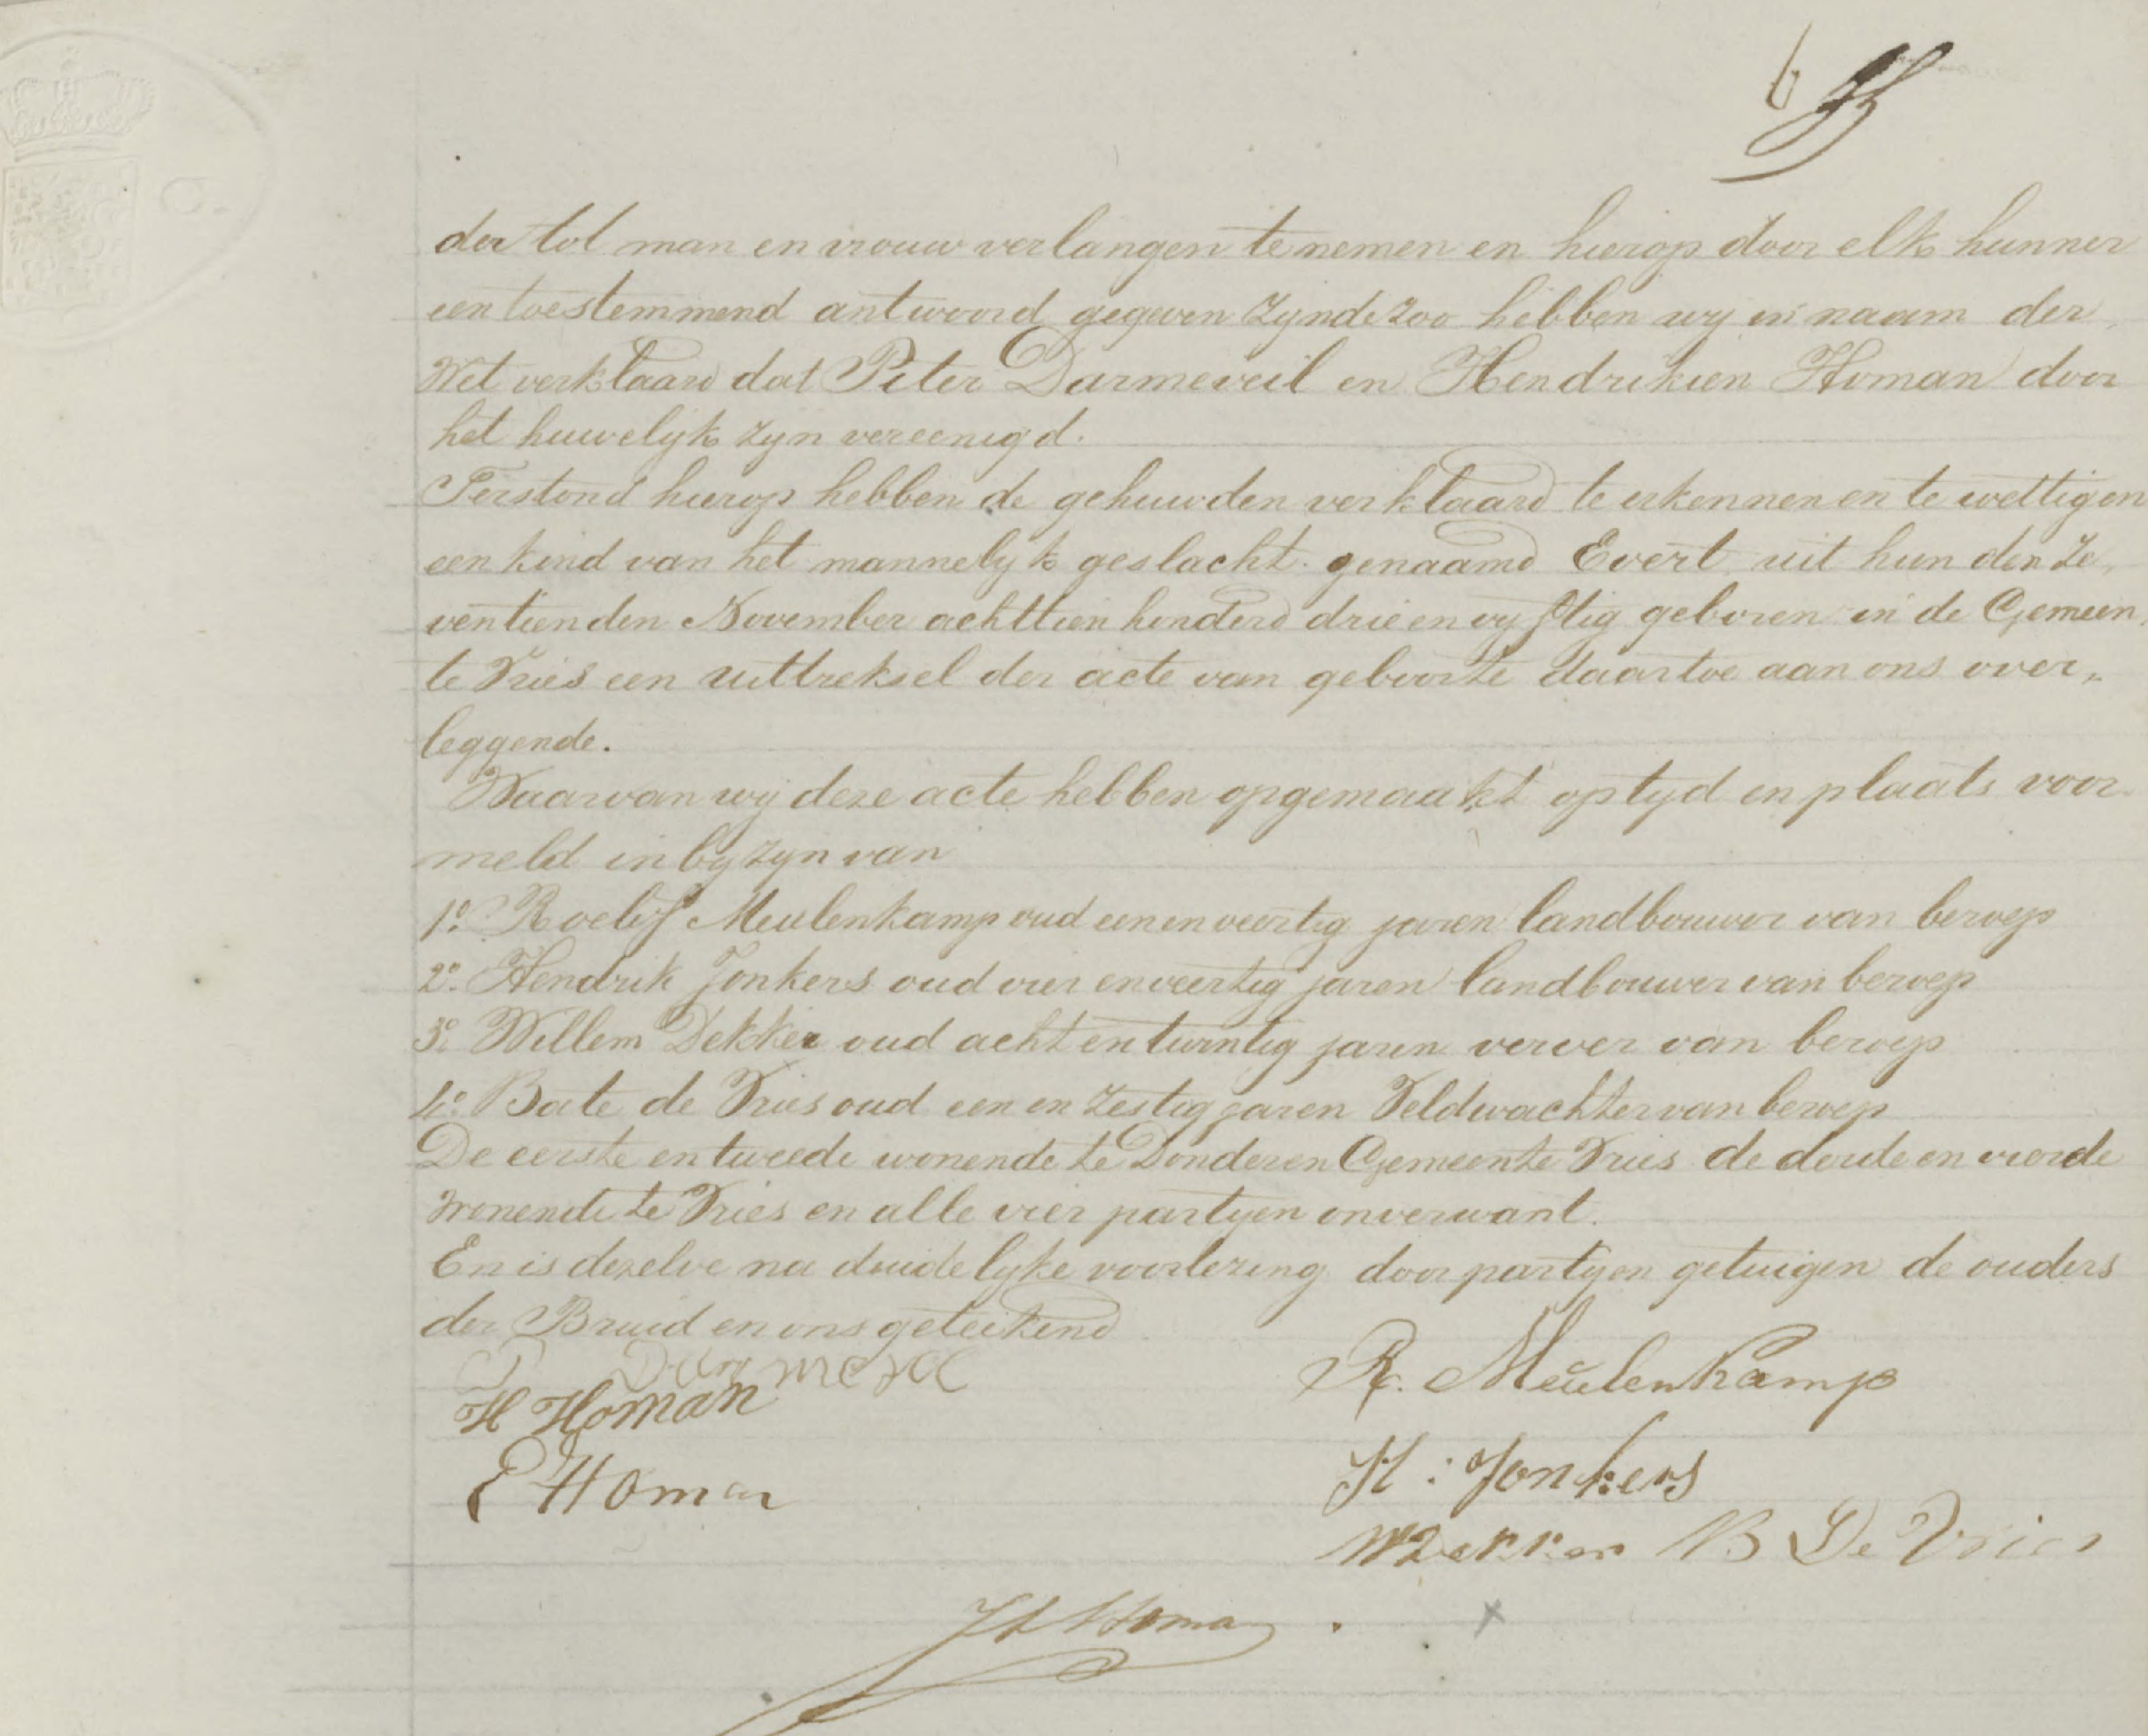 der tot man en vrouw verlangen te nemen en hierop door elk hunner
een toestemmend antwoord gegeven zynde zoo hebben wy in naam der
Wet verklaard dat Peter Darmeveil en Hendrikien Homan door
het huwelyk zyn vereenigd.
Terstond hierop hebben de gehuwden verklaard te erkennen en te wettigen
een kind van het mannelyk geslacht genaamd Evert uit hun den ze„
ventienden November achttien honderd drie en vyftig geboren in de Gemeen„
te Vries een uittreksel der acte van geboorte daartoe aan ons over„
leggende.
Waarvan wij deze acte hebben opgemaakt op tyd en plaats voor„
meld in byzyn van
1º. Roelof Meulenkamp oud een en veertig jaren landbouwer van beroep
2º. Hendrik Jonkers oud vier en veertig jaren landbouwer van beroep
3º. Willem Dekker oud acht en twintig jaren verver van beroep
4º. Bate de Vries oud een en zestig jaren Veldwachter van beroep
De eerste en tweede wonende te Donderen Gemeente Vries de derde en vierde
wonende te Vries en alle vier partyen onverwant.
En is dezelve na duidelyke voorlezing door partyen getuigen de ouders
der Bruid en ons geteekend
R. Meulenkamp
H Homan
E Homan
H: Jonkers
W Dekker B De Vries
Homan